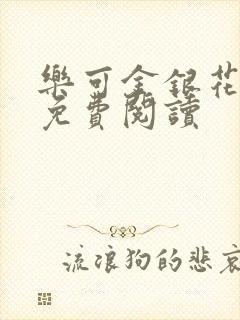 樂可金銀花
免費閱讀
流浪狗的悲哀